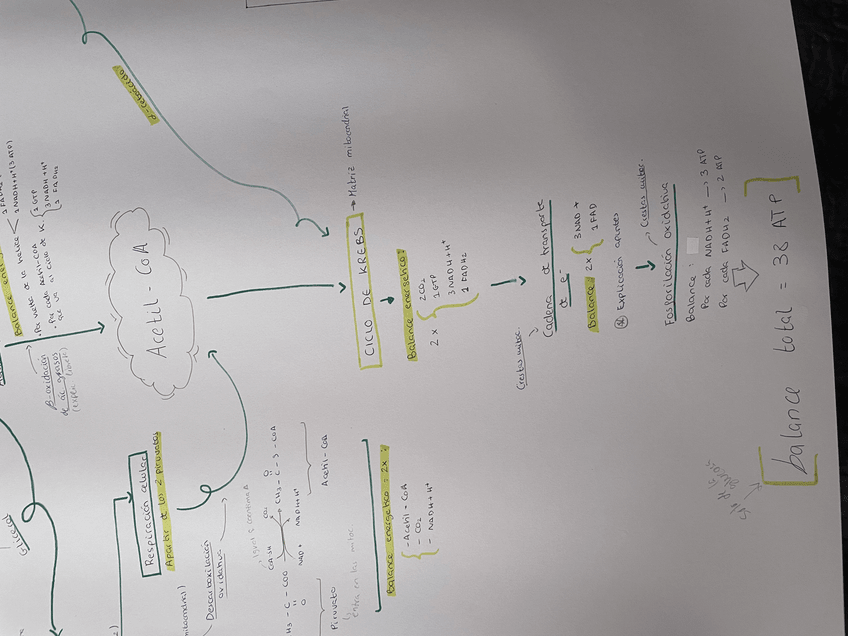 Glicerol
Balance
1 NADH+H⁺ (3 ATP)
· Por vuelta de la hélice
· Por cada Acetil-COA
que va al ciclo de K.
1 GTP
3 NADH+H⁺
1 FADH₂
β-oxidación
de ác. grasos
Acetil-COA
Respiración celular
Apartir de los 2 piruvatos
Descarboxilación
oxidativa
COA-SH
CO₂
H3 - C - COO
CH3 - C - S - COA
O
O
NAD+
NADH+H⁺
Piruvato
Acetil-COA
Entra en la mitoc.
Balance energético = 2x:
- Acetil-COA
- CO₂
- NADH+H⁺
CICLO DE KREBS → Matriz mitocondrial
Balance energético:
2 x
2CO₂
1 GTP
3NADH+H⁺
1 FADH₂
Crestas mitoc.
Cadena de transporte
de e⁻
Balance: 2x
3NAD+
1 FAD
Explicación apuntes
Crestas mitoc.
Fosforilación oxidativa
Balance:
Por cada NADH+H⁺ → 3 ATP
Por cada FADH2 → 2 ATP
balance total = 38 ATP